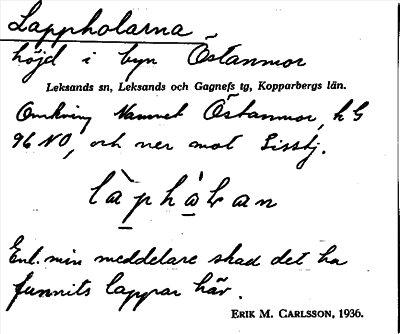 Lappholarna
höjd i byn Östanmor
Leksands sn, Leksands och Gagnefs tg, Kopparbergs län.
Omkring Namnet Östanmor, h G
96 NO, och ner mot Lisstj.
Enl. min meddelare skad det ha
funnits lappar här.
ERIK M. CARLSSON, 1936.